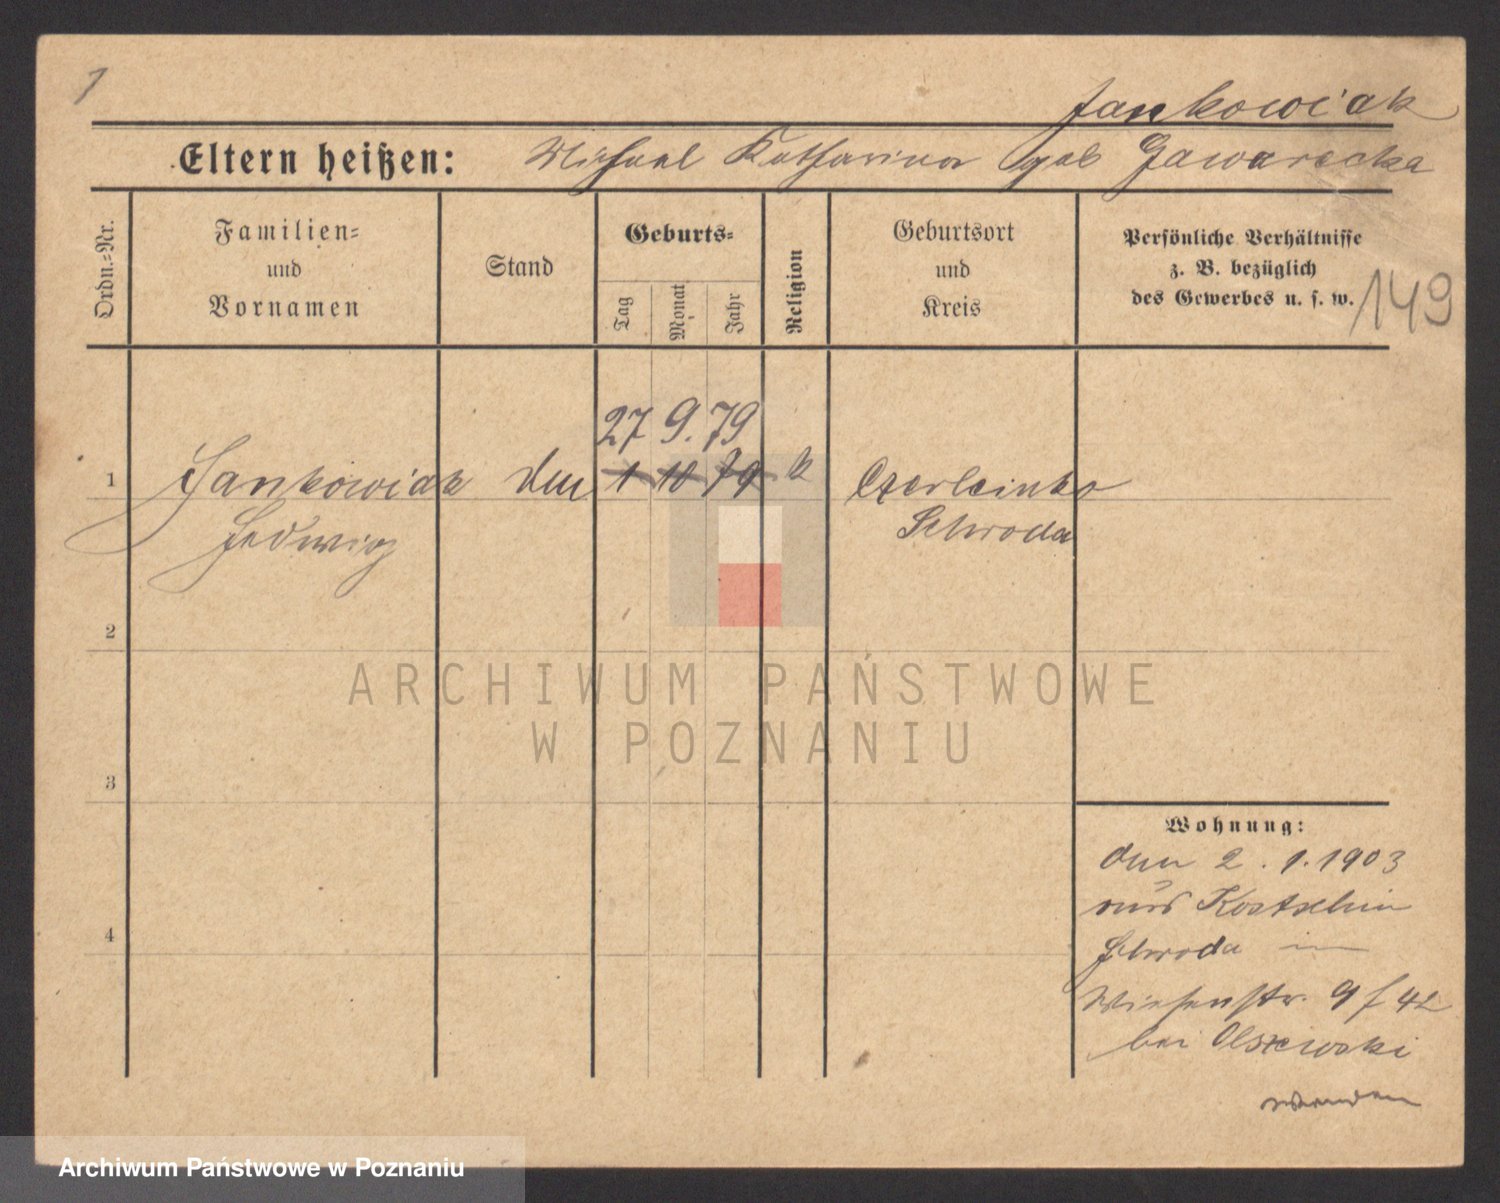 1
Jankowiak
Eltern heißen: Michael Katharina geb Gawarecka
Ordn.-Nr.
Familien-
und
Vornamen
Stand
Geburts-
Tag
Monat
Jahr
Religion
Geburtsort
und
Kreis
Persönliche Verhältnisse
z. B. bezüglich
des Gewerbes u. s. w.
149
27 9. 79
1 Jankowiak 1 10 79 k Czerleinko
Hedwig Schroda
2
3
4
Wohnung:
den 2. 1. 1903
aus Kostschin
Schroda in
Wiesenstr. 9 f 42
bei Olszewski
wenden
ARCHIWUM PAŃSTWOWE
W POZNANIU
Archiwum Państwowe w Poznaniu